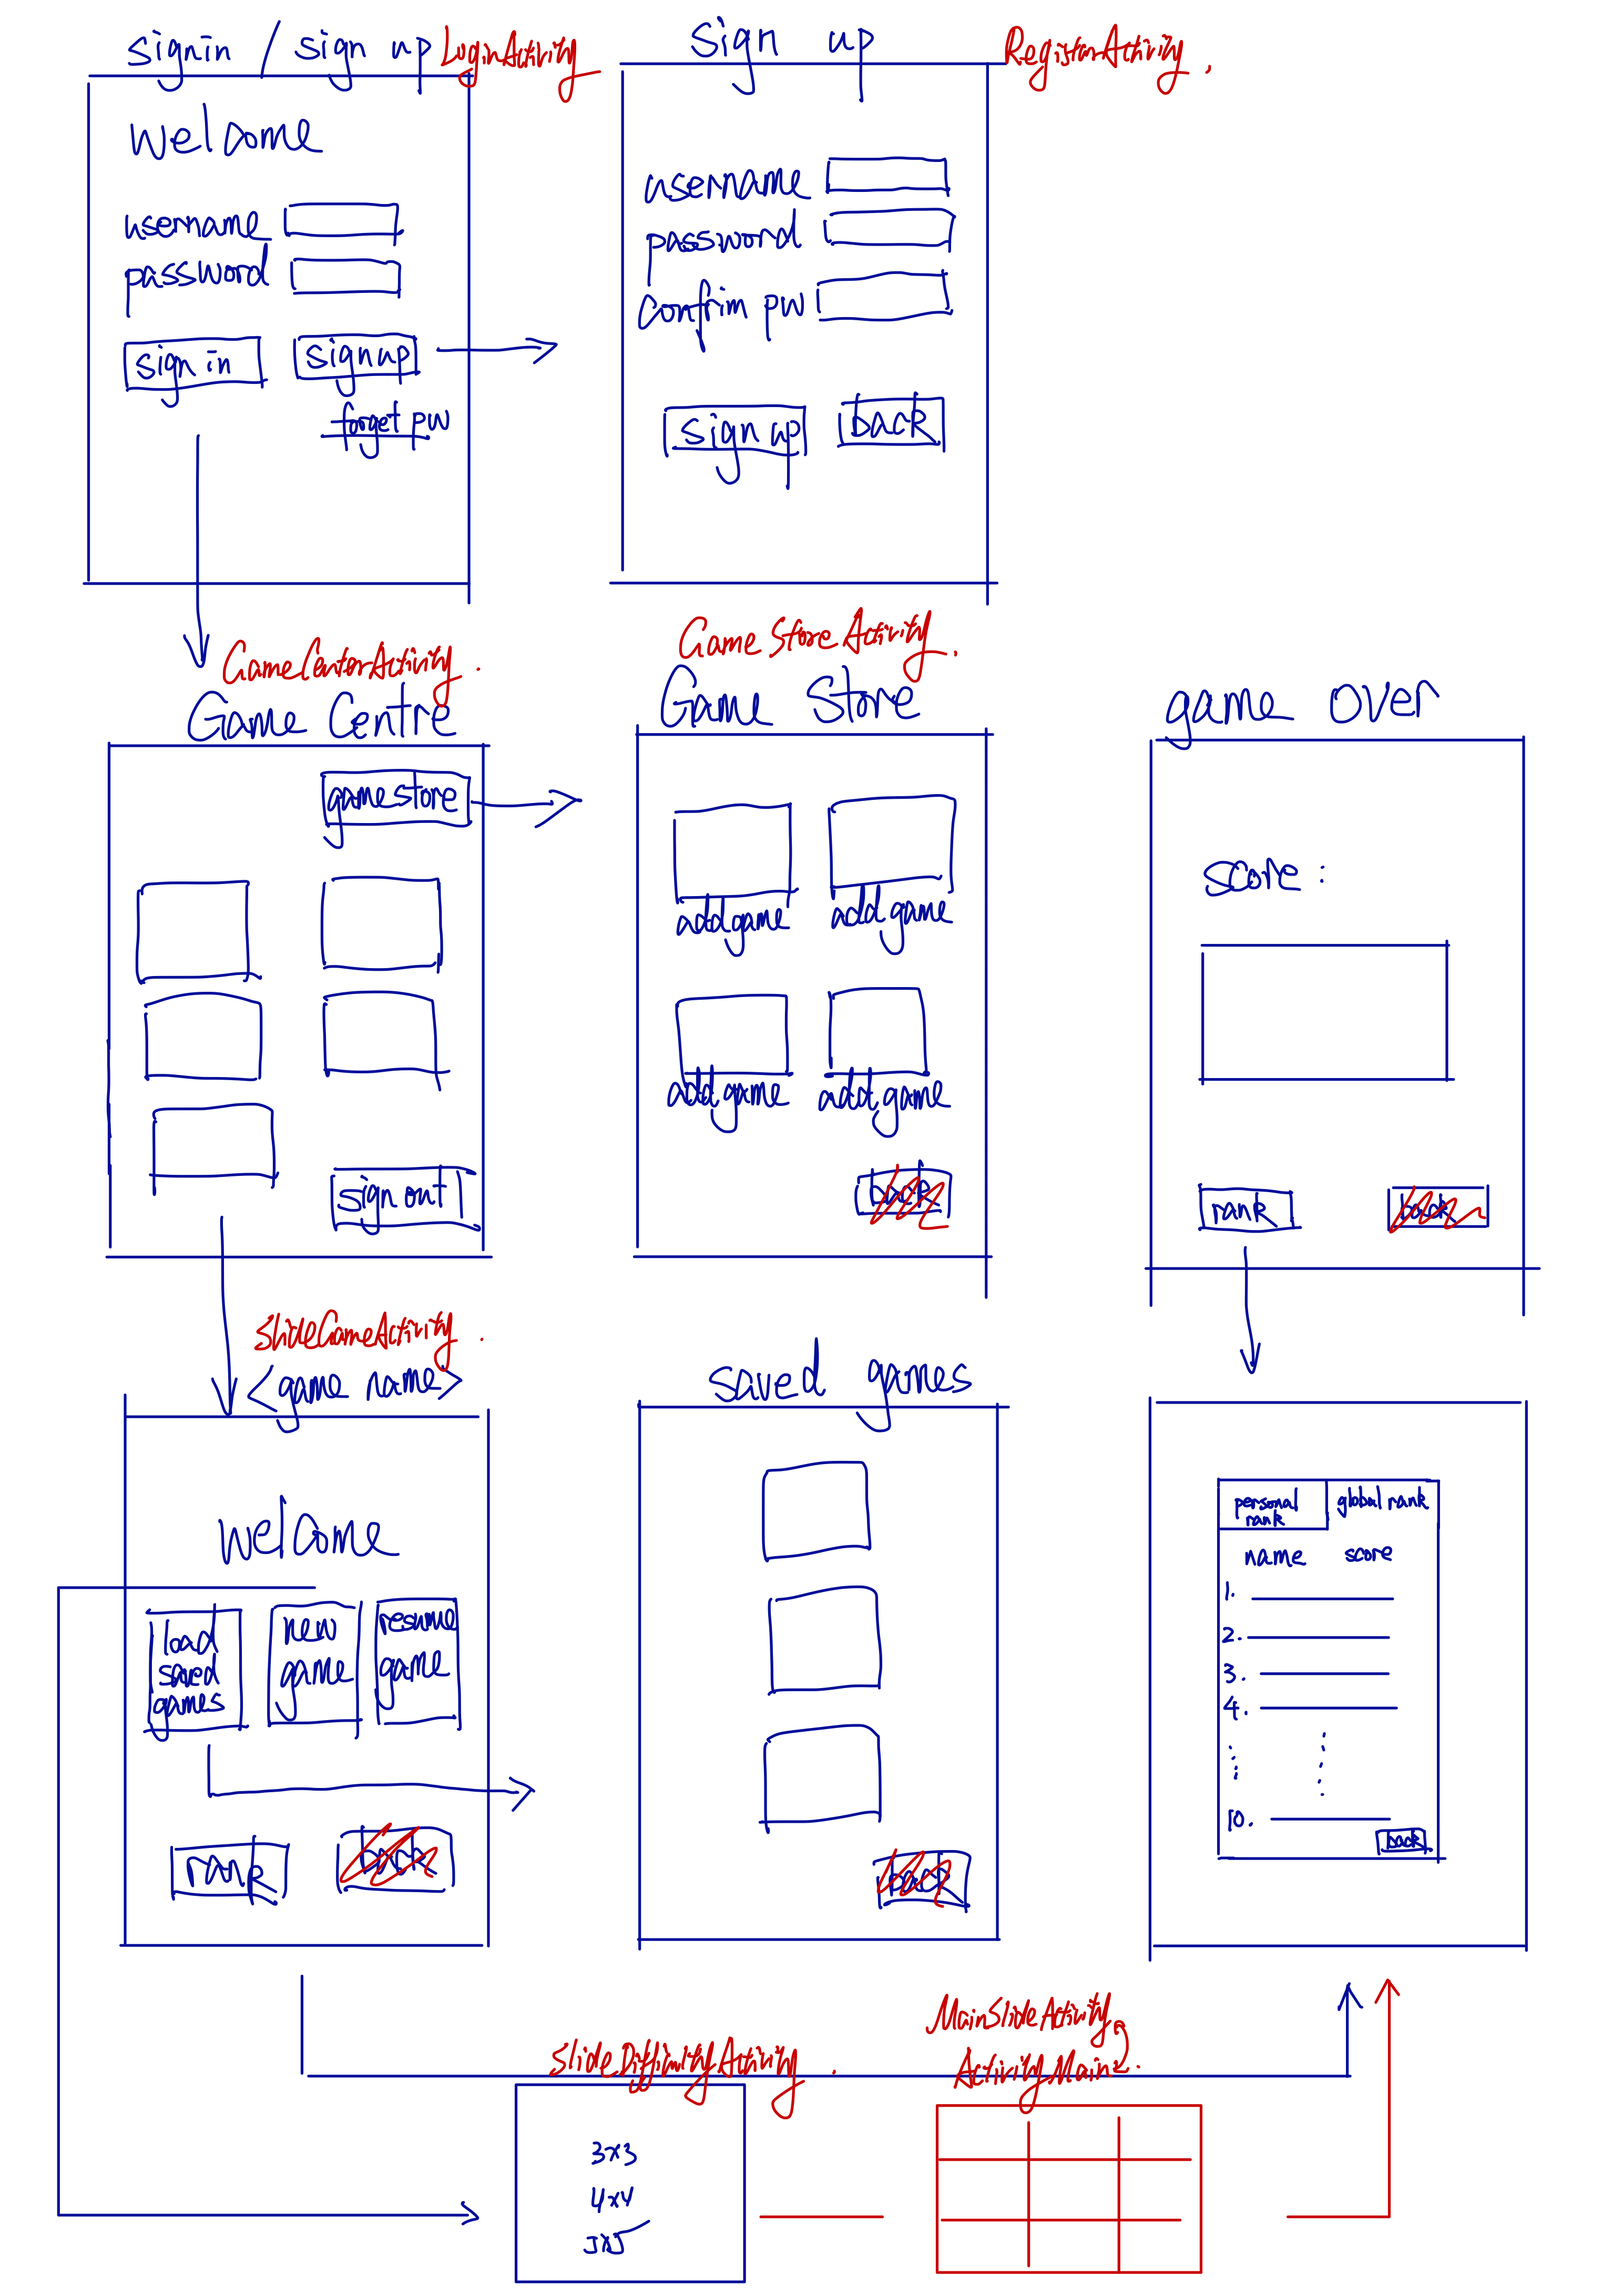 signin / sign up LoginActivity
Welcome
username
password
sign in
signup
forget pw
sign up RegisterActivity.
username
password
Confirm pw
sign up
back
GameCenterActivity.
Game Centre
game store
sign out
GameStoreActivity.
Game Store
add game
add game
add game
add game
back
game over
score :
rank
back
SlideGameActivity.
<game name>
Welcome
load
saved
games
new
game
resume
game
rank
back
saved games
back
personal
rank
global rank
name score
1.
2.
3.
4.
10.
back
SlideDifficultyActivity.
3x3
4x4
5x5
MainSlideActivity
ActivityMain.